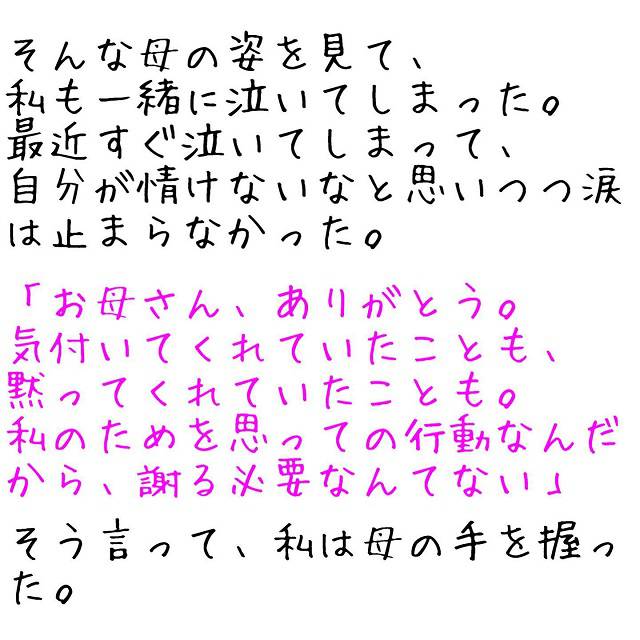 そんな母の姿を見て、
私も一緒に泣いてしまった。
最近すぐ泣いてしまって、
自分が情けないなと思いつつ涙
は止まらなかった。
「お母さん、ありがとう。
気付いてくれていたことも、
黙ってくれていたことも。
私のためを思っての行動なんだ
から、謝る必要なんてない」
そう言って、私は母の手を握っ
た。